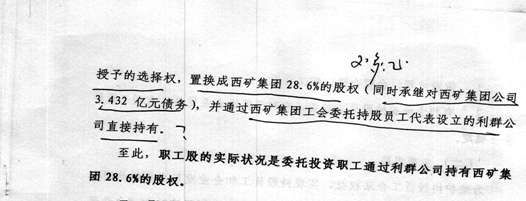 授予的选择权，置换成西矿集团 28.6%的股权（同时承继对西矿集团公司
3.432 亿元债务），并通过西矿集团工会委托持股员工代表设立的利群公
司直接持有。
至此，职工股的实际状况是委托投资职工通过利群公司持有西矿集
团 28.6%的股权。